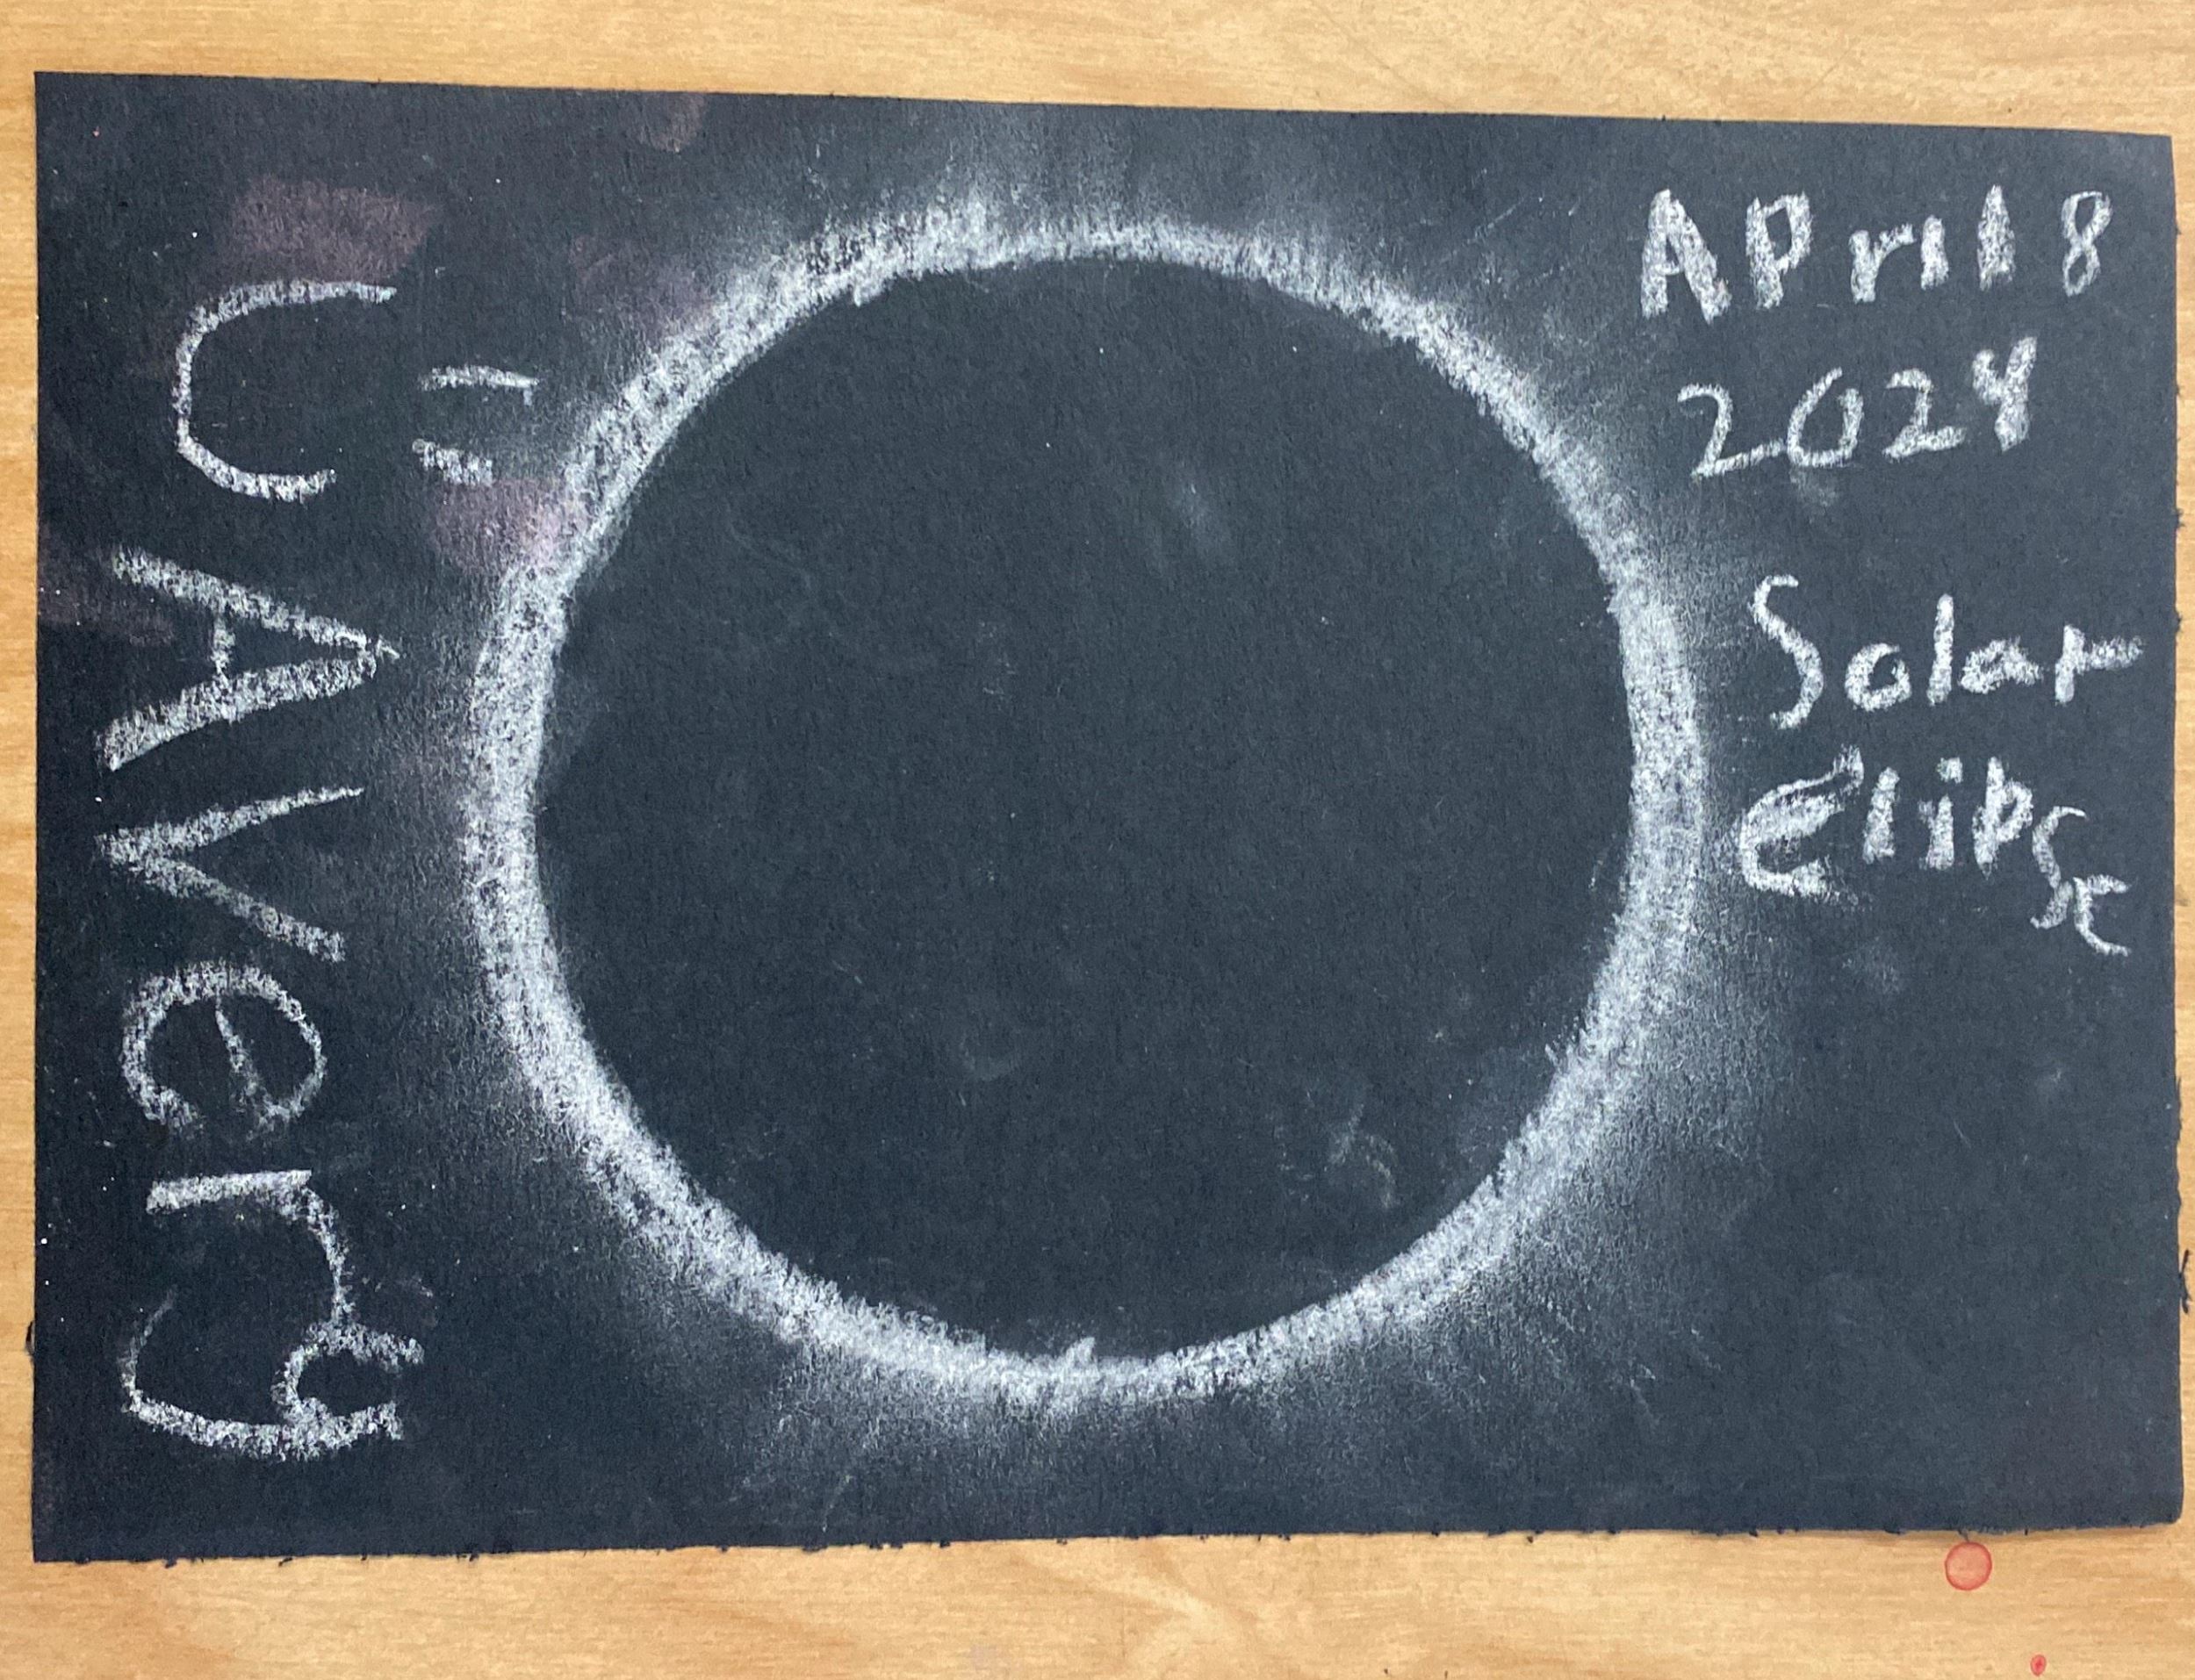 APril 8
2024
Solar
Elipse
ÜAVery